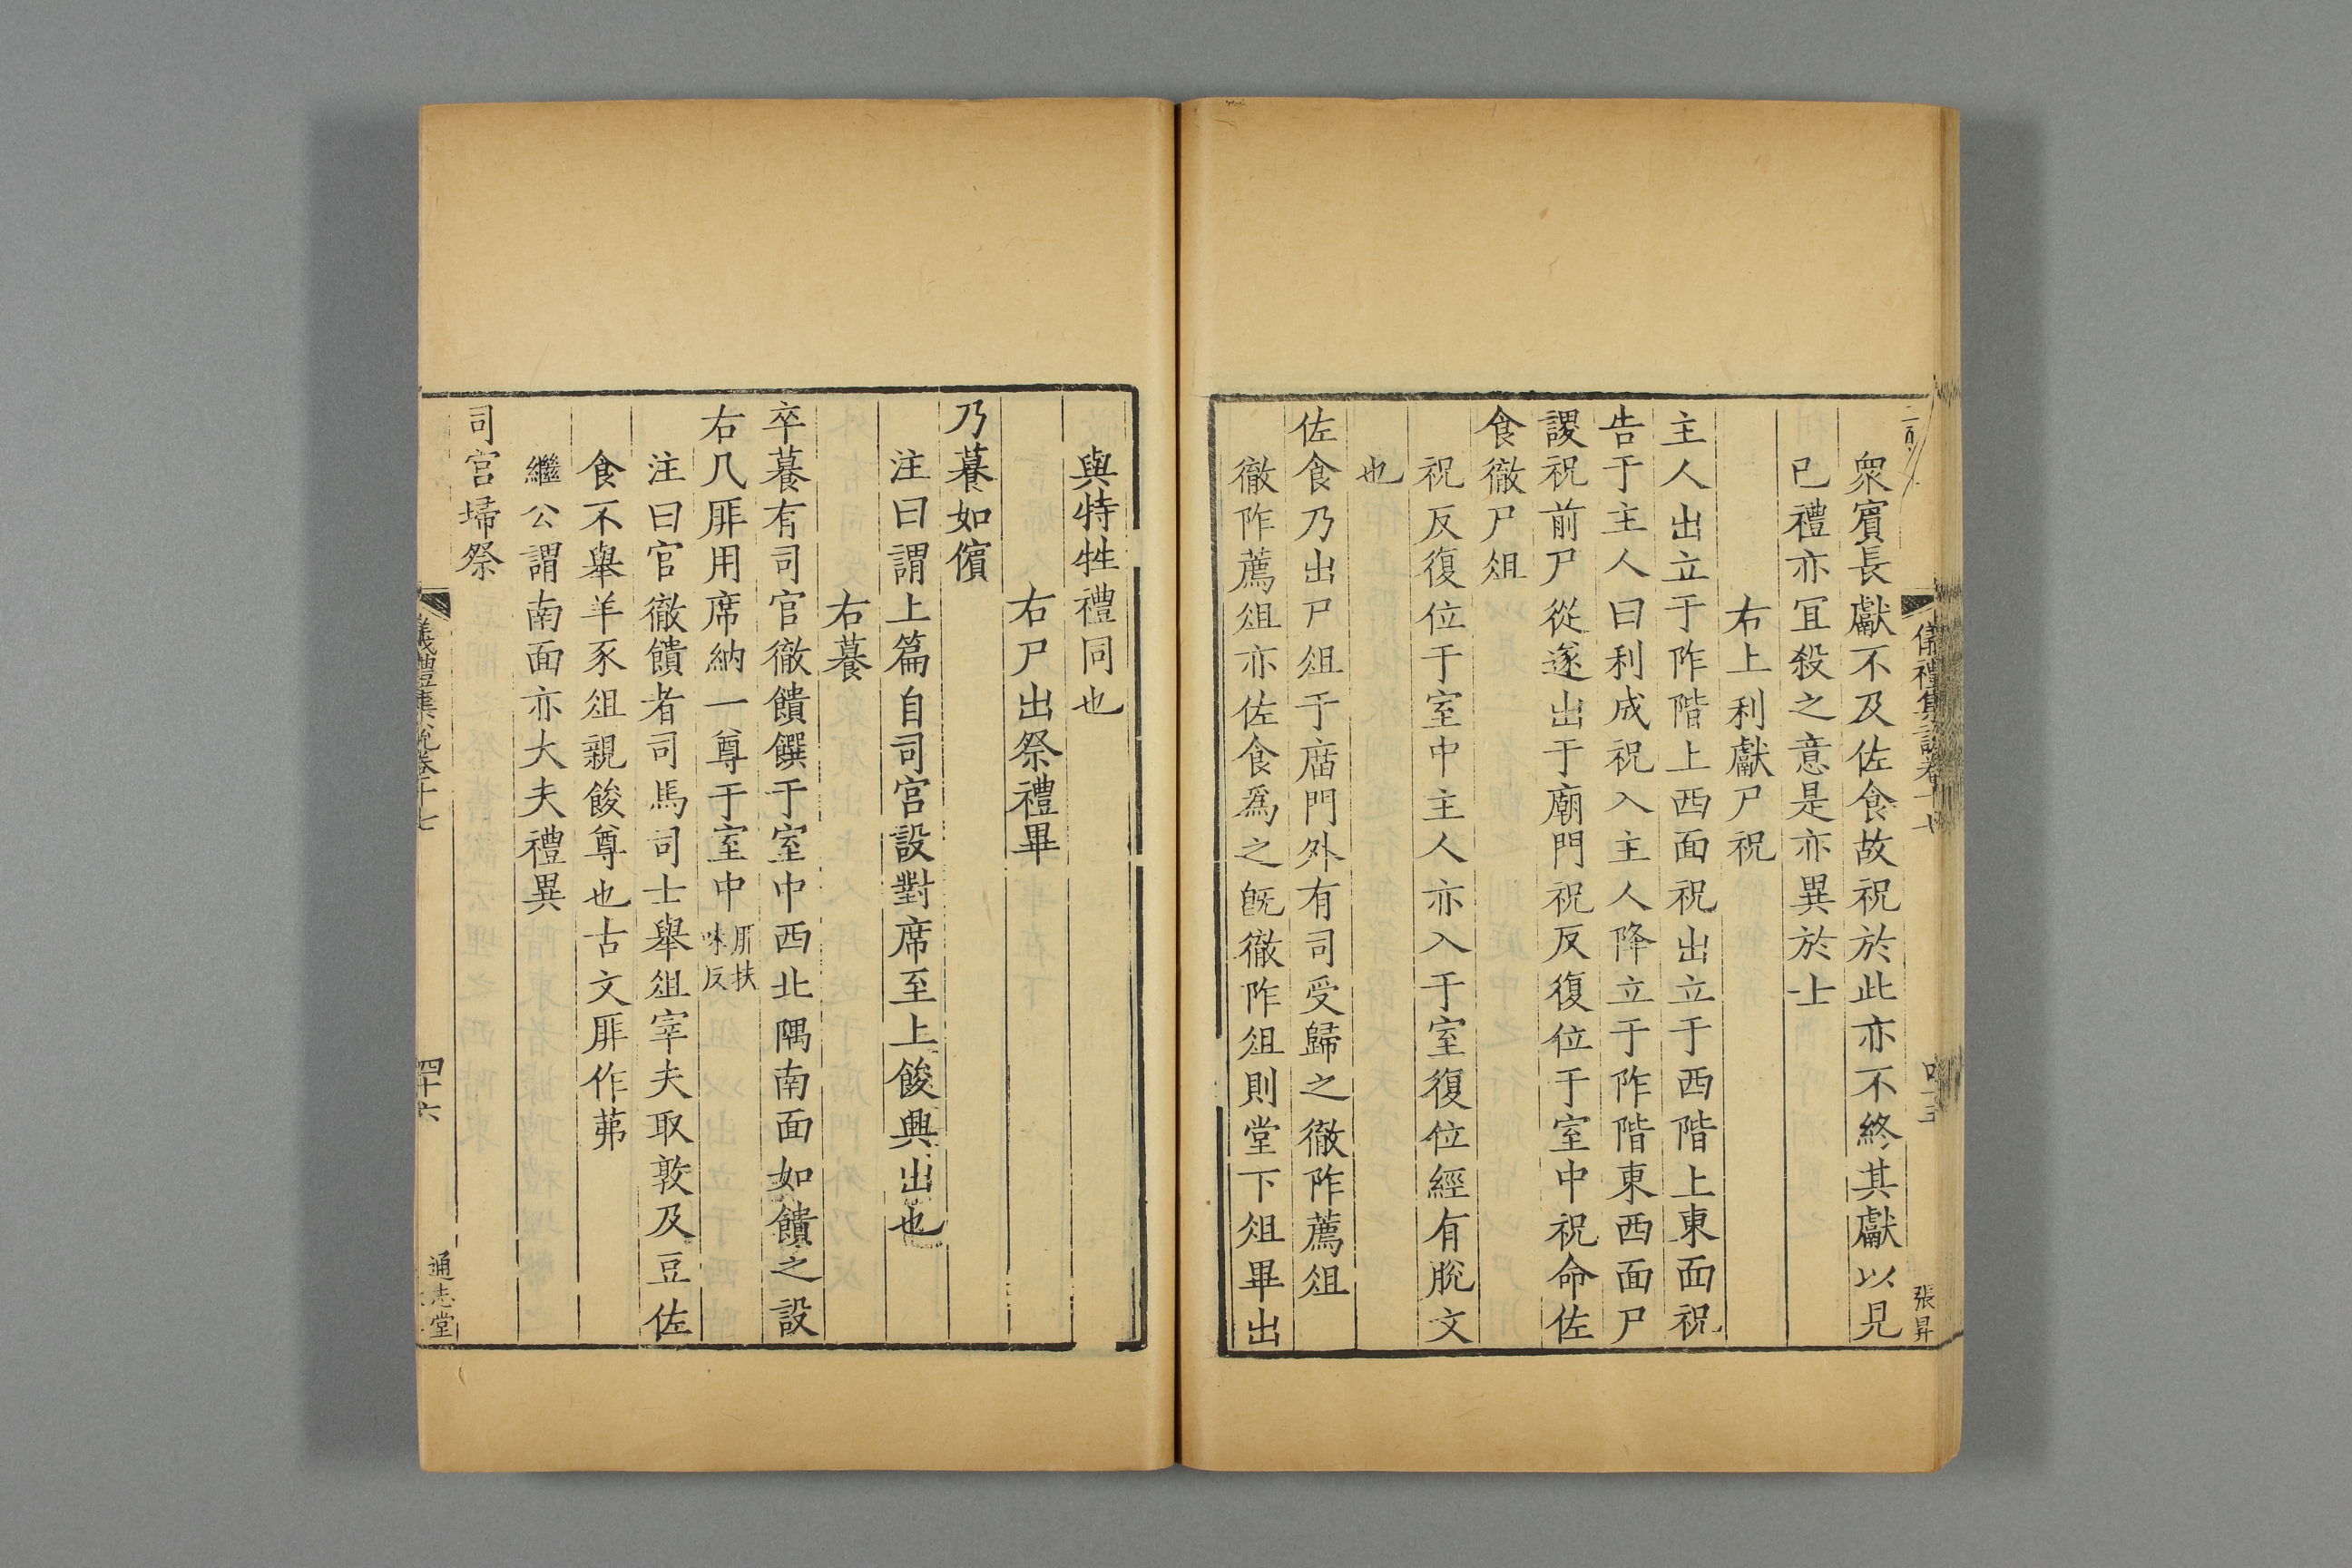 衆賓長獻不及佐食故祝於此亦不終其獻以見
已禮亦宜殺之意是亦異於士
右上利獻尸祝
主人出立于阼階上西面祝出立于西階上東面祝
告于主人曰利成祝入主人降立于阼階東西面尸
謖祝前尸從遂出于廟門祝反復位于室中祝命佐
食徹尸俎
祝反復位于室中主人亦入于室復位經有脫文
也
佐食乃出尸俎于廟門外有司受歸之徹阼薦俎
徹阼薦俎亦佐食爲之旣徹阼俎則堂下俎畢出
儀禮集說卷十七
張昇
與特牲禮同也
右尸出祭禮畢
乃養如儐
注曰謂上篇自司宮設對席至上餕興出也
右養
卒養有司官徹饋饌于室中西北隅南面如饋之設
右几厞用席納一尊于室中厞扶味反
注曰官徹饋者司馬司士舉俎宰夫取敦及豆佐
食不舉羊豕俎親餕尊也古文厞作茀
繼公謂南面亦大夫禮異
司宮埽祭
儀禮集說卷十七
四十六
通志堂